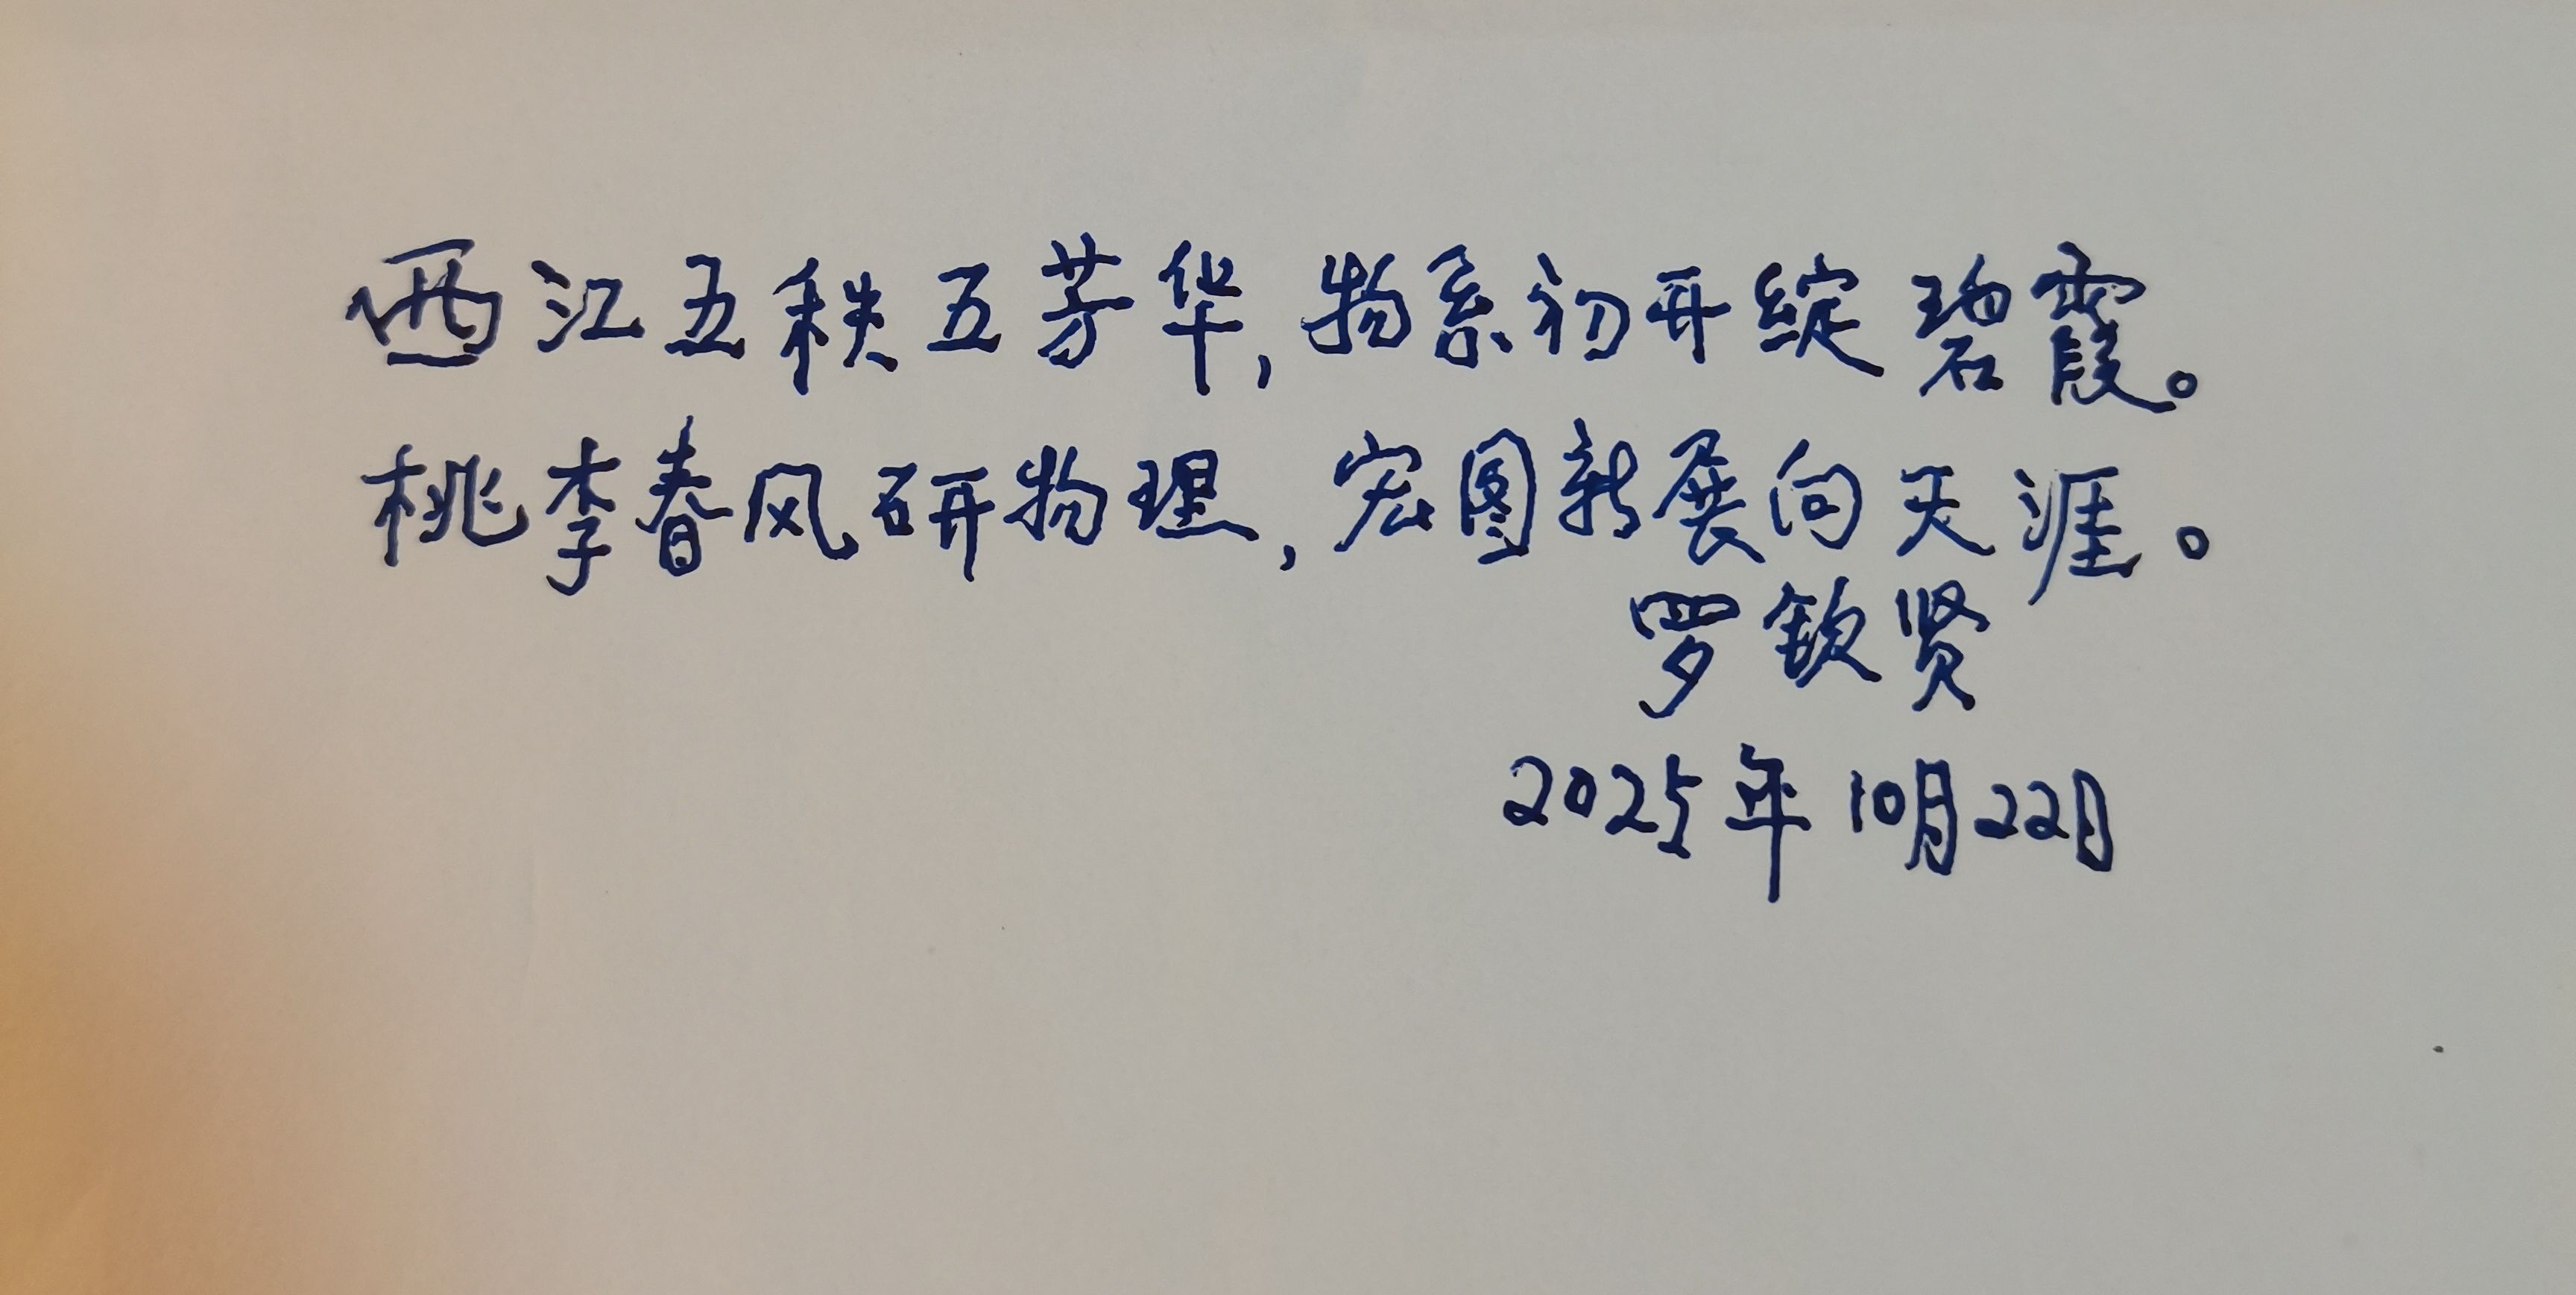 西江五秩五芳华,物系初开绽碧霞。
桃李春风研物理,宏图新展向天涯。
罗钦贤
2025年10月22日